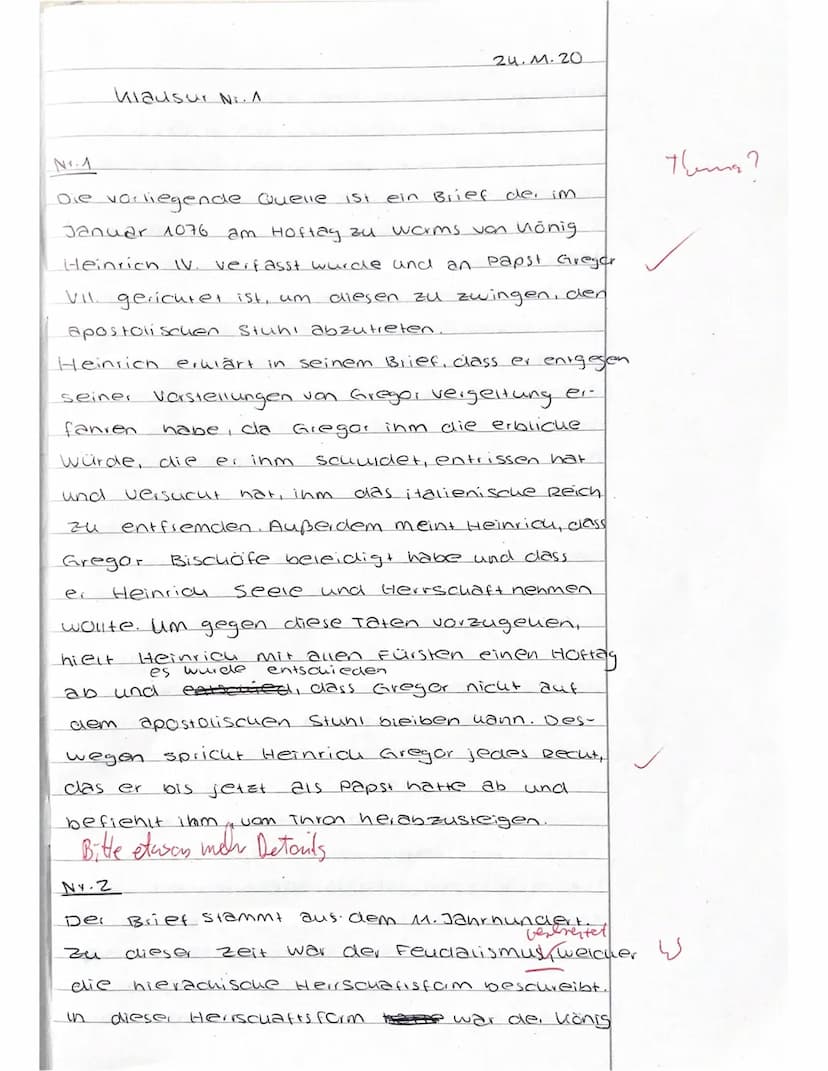 24.11.20
Klausur Nr.1
Nr.1
Thema?
Die vorliegende Quelle ist ein Brief der im
Januar 1076 am Hoftag zu Worms von König
Heinrich IV. verfasst wurde und an Papst Gregor
VII. gerichtet ist, um diesen zu zwingen, den
apostolischen Stuhl abzutreten.
Heinrich erklärt in seinem Brief, dass er entgegen
seiner Vorstellungen von Gregor Vergeltung er-
fahren habe, da Gregor ihm die erbliche
Würde, die er ihm schuldet, entrissen hat
und versucht hat, ihm das italienische Reich
zu entfremden. Außerdem meint Heinrich, dass
Gregor Bischöfe beleidigt habe und dass
er Heinrich Seele und Herrschaft nehmen
wollte. Um gegen diese Taten vorzugehen,
hielt Heinrich mit allen Fürsten einen Hoftag
es wurde entschieden
ab und entschied, dass Gregor nicht auf
dem apostolischen Stuhl bleiben kann. Des-
wegen spricht Heinrich Gregor jedes Recht,
das er bis jetzt als Papst hatte ab und
befiehlt ihm, vom Thron herabzusteigen.
Bitte etwas mehr Details
Nr.2
Der Brief stammt aus dem 11. Jahrhundert.
verbreitet
Zu dieser Zeit war der Feudalismus, welcher
die hierachische Herrschaftsform beschreibt.
In dieser Herrschaftsform war der König